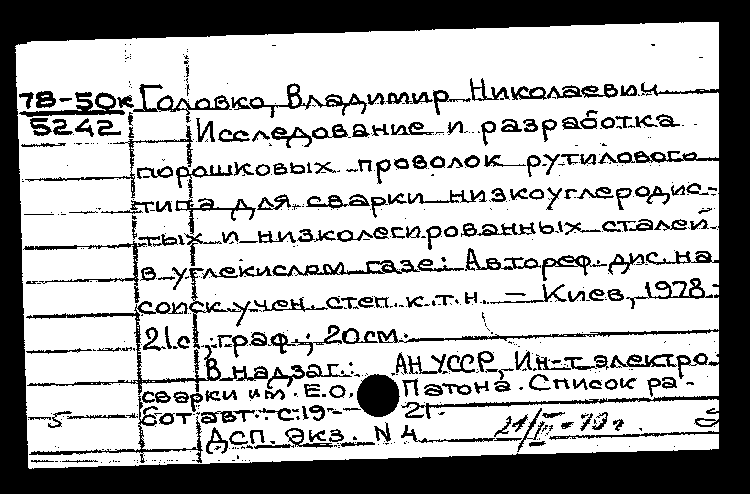 78-50к Головко, Владимир Николаевич
5242 Исследование и разработка
порошковых проволок рутилового
типа для сварки низкоуглеродис-
тых и низколегированных сталей
в углекислом газе: Автореф. дис. на
соиск. учен. степ. к.т.н. – Киев, 1978.
21с., граф.; 20см.
В надзаг.: АН УССР, Ин-т электро-
сварки им. Е.О. Патона. Список ра-
5 бот авт.: с.19-21.
ДСП. Экз. N 4. 21/III-79г.